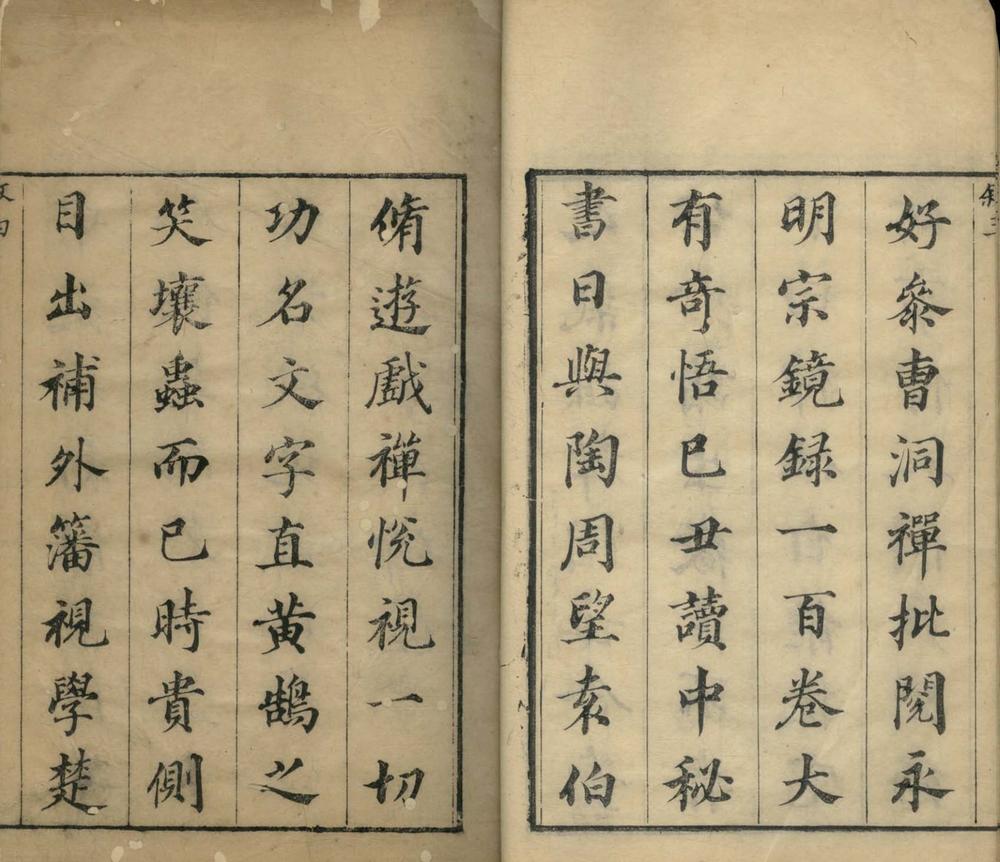 好叅曹洞禪批閱永
明宗鏡録一百卷大
有奇悟已丑讀中秘
書日與陶周望袁伯
脩遊戲禪悅視一切
功名文字直黄鵠之
笑壤蟲而已時貴側
目出補外籓視學楚